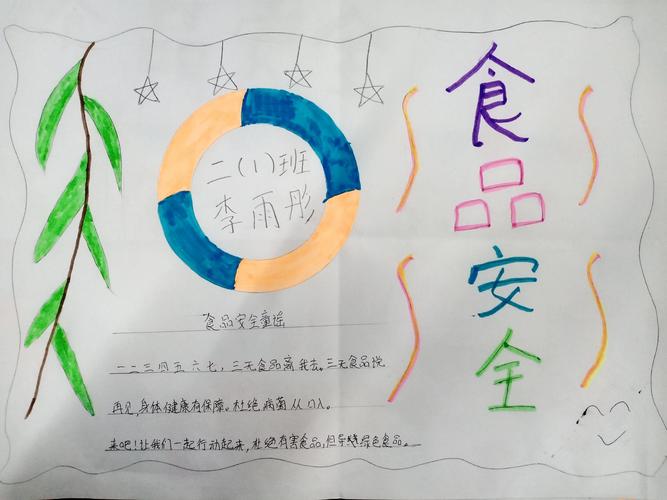 食品安全
二(1)班
李雨彤
食品安全童谣
一二三四五六七,三无食品离我去。三无食品说
再见,身体健康有保障。杜绝病菌从口入。
来吧!让我们一起行动起来,杜绝有害食品,倡导绿色食品。